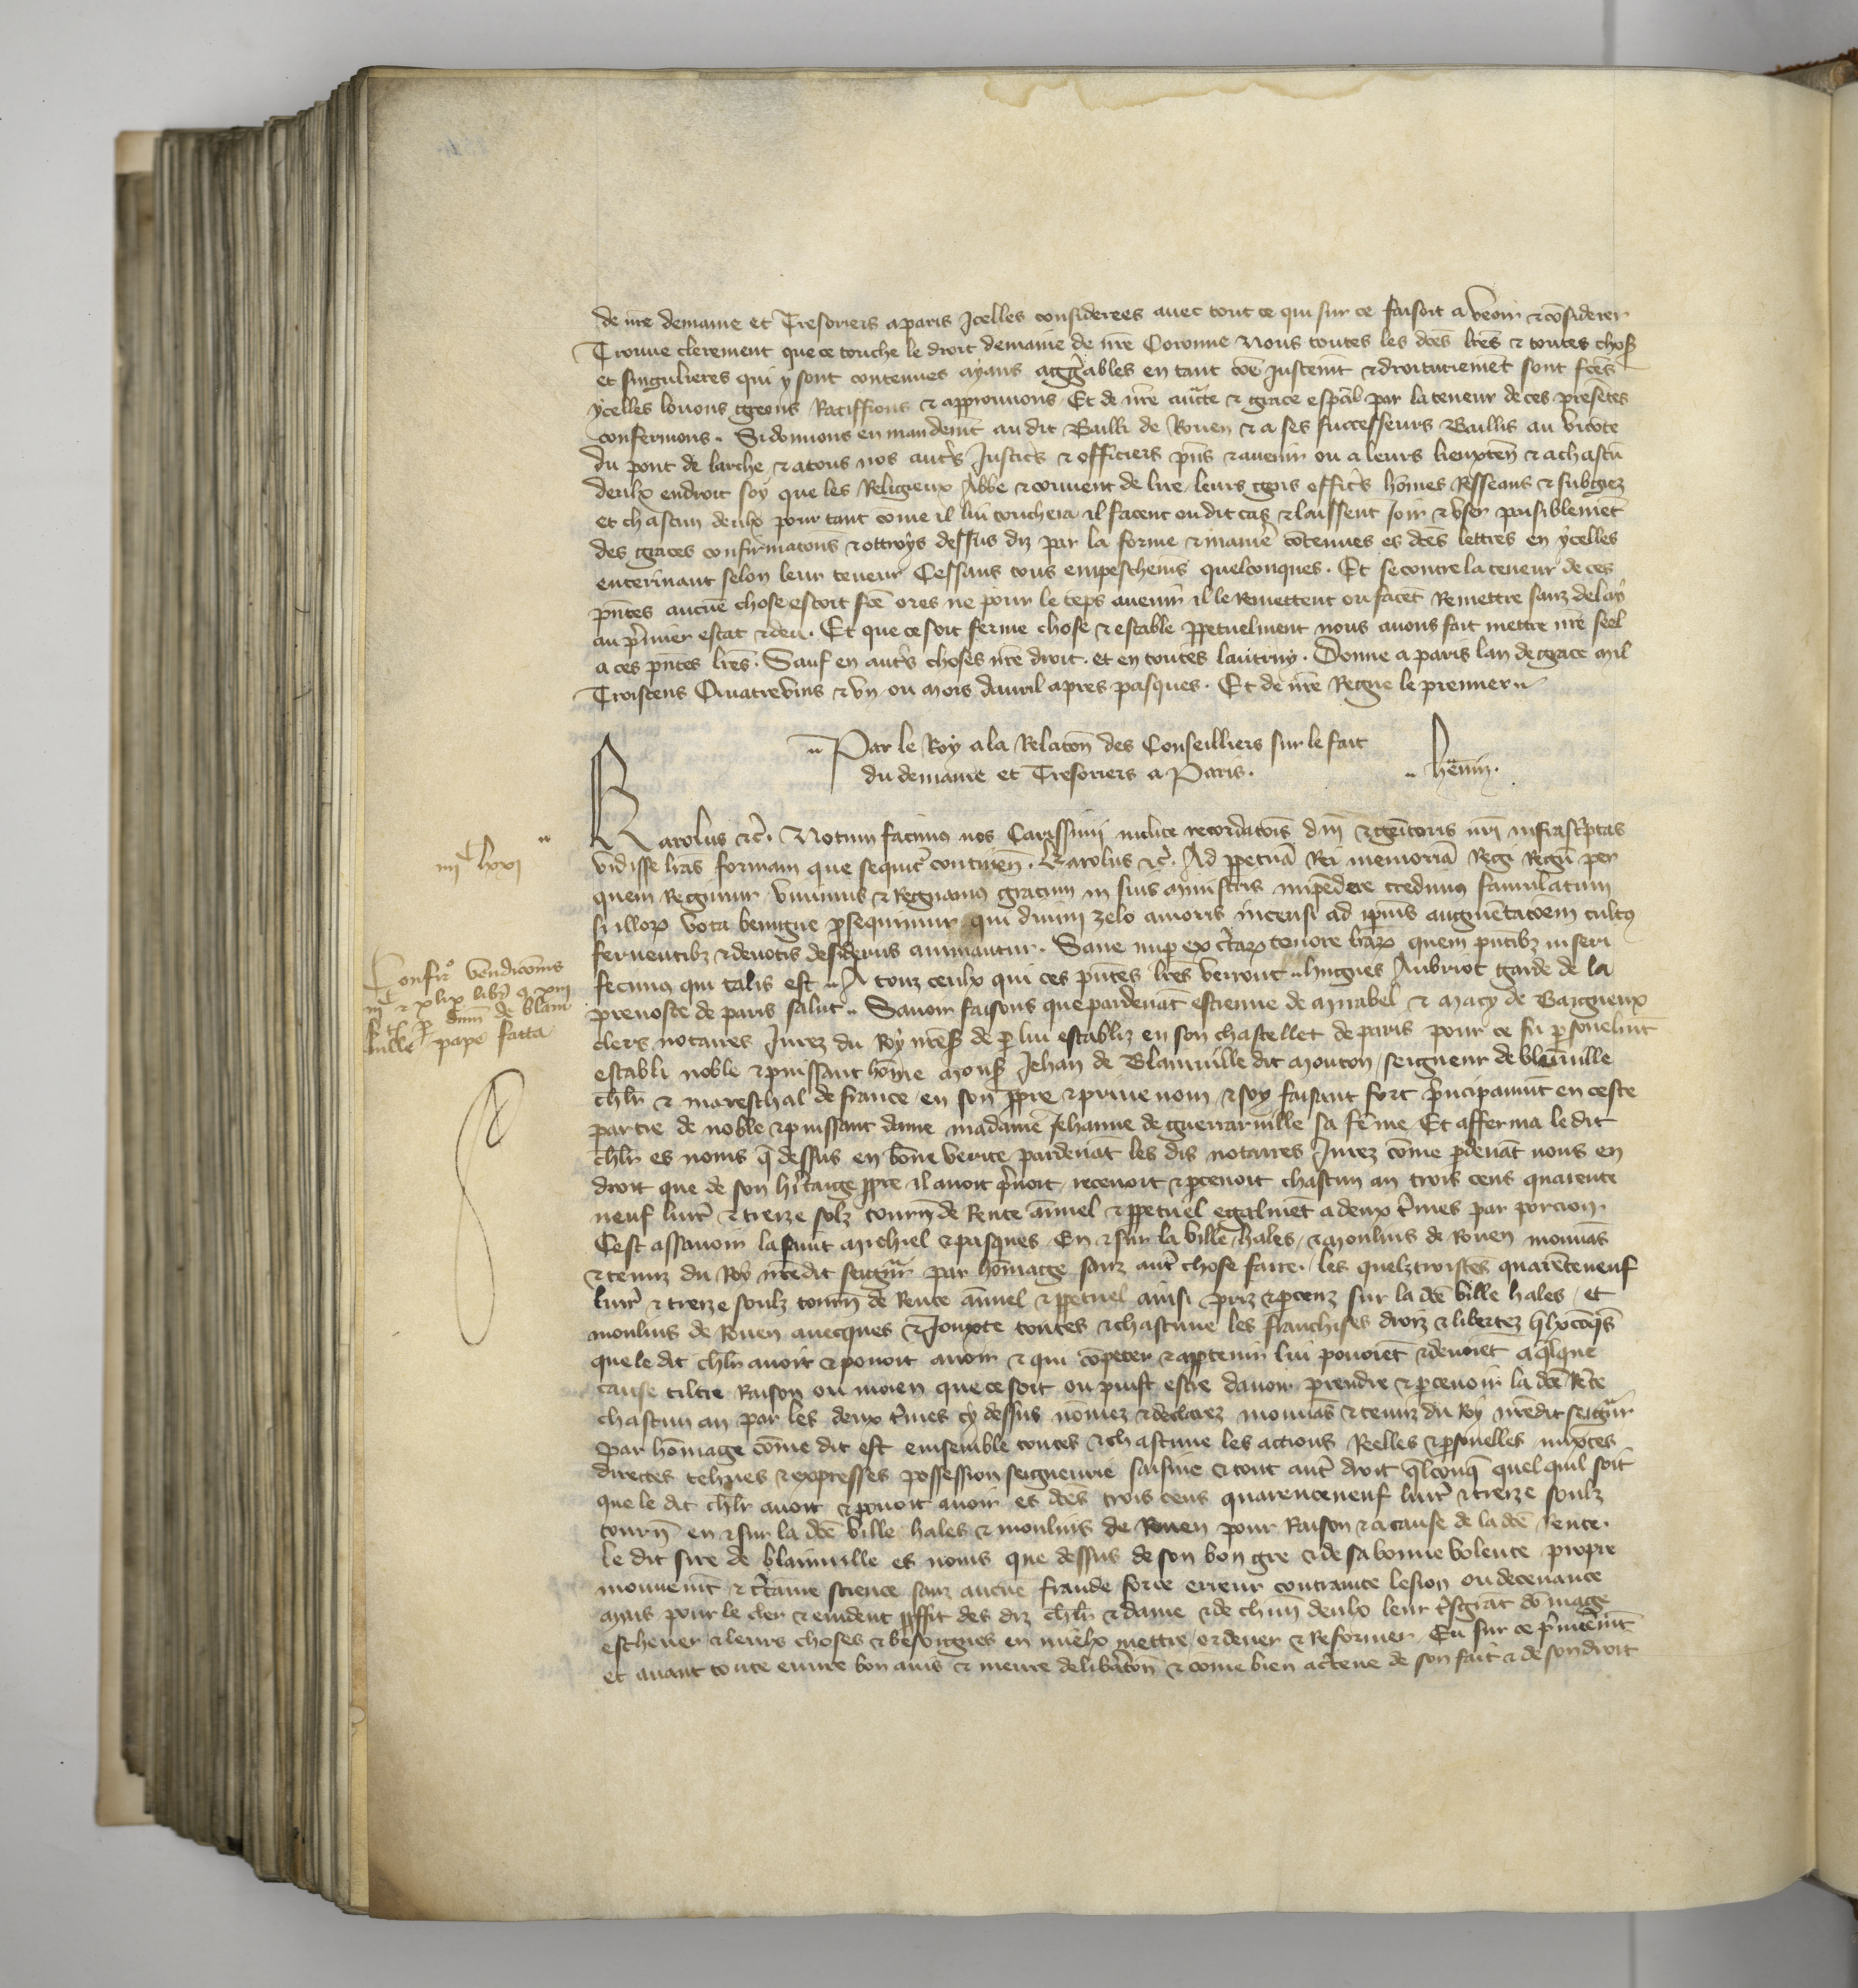 de nr̄e demaine et Tresoriers a paris Icelles considerees auec tout ce qui sur ce faisoit a veoir & cōsiderer
Trouue clerement que ce touche le droit demaine de nr̄e Coronne Nous toutes les dc̄es lr̄es & toutes choses
et singulieres qui y sont contenues ayans aggr̄ables en tant cōe Justemt̄ & droituriemēt sont fc̄es
ycelles louons greons Ratiffions & approuuons Et de nr̄e auctē & grace esp̄al par la teneur de ces presētes
confermons . Si donnons en mandemt̄ au dit Bailli de Rouen & a ses successeurs Baillis au vicōte
du pont de larche & a tous nos autr̄s Justic̄s & officiers pn̄s & auenir ou a leurs lieuxten̄ & a chascū
deulx endroit soy que les Religieux Abbe & conuent de lire leurs gens offic̄s hōmes Resseans & subgiez
et chascun deulx pour tant cōme il lui touchera il facent ou dit cas & laissent Joir & vser paisiblemēt
des graces confirmacons & ottroys dessus diz par la forme & manier̄ cōtenues es dc̄es lettres en ycelles
enterinant selon leur teneur Cessans tous empeschemēs quelconques . Et se contre la teneur de ces
pn̄tes aucūe chose estoit fc̄e ores ne pour le tēps auenir il le remettent ou facēt Remettre sanz delay
au p̄mier estat & deu . Et que ce soit ferme chose & estable ꝑpetuelment nous auons fait mettre nr̄e seel
a ces pn̄tes lr̄es . Sauf en autr̄s choses nr̄e droit . et en toutes lautruy . Donne a paris lan de grace mil
Troiscens Quatrevins & vn ou mois dauril apres pasques . Et de nr̄e Regne le premier
Par le Roy a la Relacōn des Conseilliers sur le fait
du demaine et Tresoriers a Paris .
Karolus &c̄ . Notum facimus nos Carissimi inclite recordacōis dn̄i & gēitoris nr̄i infrasc̄ptas
iiiᶜ lxxi
vidisse lr̄as formam que sequit̄ continen̄ . Karolus &c̄ . Ad ꝑpetuā Rei memoriā Regi Regū per
quem Regimur viuimus & Regnamus gratum in suis ministris impēdere credimus famulatum
si illorꝝ vota benigne ꝓsequimur qui diuini zelo amoris incensi ad ipīus augmētacōem cultus
feruentibꝫ & deuotis desideriis animantur . Sane nuꝑ ex c̄tarꝝ tenore lr̄arꝝ quem pn̄tibꝫ inseri
fecimus qui talis est A touz ceulx qui ces pn̄tes lr̄es verront hugues Aubriot garde de la
Confirᵒ vendicōnis
iiiᶜ & xlix libr̄ & xiii
s t ꝑ dnm̄ de blain
uille pape facta
preuoste de paris salut . Sauoir faisons que pardeuāt estienne de Mirabel & Macy de Baigneux
clers notaires Jurez du Roy nr̄es de ꝑ lui establiz en son chastellet de paris pour ce fu ꝑsonelmt̄
establi noble & puissant hōme Mons Jehan de Blainuille dit Mouton seigneur de blainuille
chlr̄ & mareschal de france en son ꝓpre & priue nom & soy faisant fort p̄ncipaumt̄ en ceste
partie de noble & puissant dame madamē Jehanne de guerraruille sa fēme Et afferma le dit
chlr̄ es noms q̄ dessus en bōne verite pardeuāt les dis notaires Jurez cōme ꝑdeuāt nous en
droit que de son hr̄itaige ꝓpre il auoit p̄noit receuoit & ꝑceuoit chascun an trois cens quarente
neuf liur̄ & treze solz tourn̄ de Rente annuel & ꝑpetuel egalmēt a deux t̄mes par porcion
Cest assauoir la saint Michiel & pasques En & sur la ville hales & moulins de Rouen mouuās
& tenuz du Roy nr̄edit seigneur par hōmage sanz autr̄ chose faire . les quelz troiscēs quarēteneuf
liur̄ & treze soulz tourn̄ de Rente annuel & ꝑpetuel ainsi priz & ꝑceuz sur la dc̄e ville hales et
moulins de Rouen auecques & Jouxte toutes & chascune les franchises droiz & libertez q̄lxcōqs̄
que le dit chlr̄ auoit & pouoit auoir & qui cōpeter & apptenir lui pouoiēt & deuoiēt a q̄lque
cause tiltre Raison ou moien que ce soit ou puist estre dauoir prendre & ꝑceuoir la dc̄e Rēte
chascun an par les deux t̄mes cy dessus nōmez & declairez mouuās & tenuz du Roy nr̄edit seigneur
par hōmage cōme dit est ensemble toutes & chascune les actions Reelles & ꝑsonelles mixtes
directes teltues & expresses possession seigneurie saisine & tout autr̄ droit q̄lconq̄ quel quil soit
que le dit chlr̄ auoit & pouoit auoir es dc̄es trois cens quarenteneuf liur̄ & treze soulz
tourn̄ en & sur la dc̄e ville hales & moulins de Rouen pour Raison & a cause de la dc̄e rente .
le dit sire de blainuille es noms que dessus de son bon gre & de sa bonne volente propre
mouuemt̄ & c̄taine science sanz aucūe fraude force erreur contrainte lesion ou deceuance
mais pour le cler & euident ꝓffit des diz chlr̄ & dame & de chūn deulx leur t̄sgrāt dōmage
escheuer & leurs choses & besoignes en mielx mettre ordener & Reformer Eu sur ce p̄mieremt̄
et auant toute euure bon auis & meure delibr̄acōn & come bien ac̄tene de son fait & de son droit